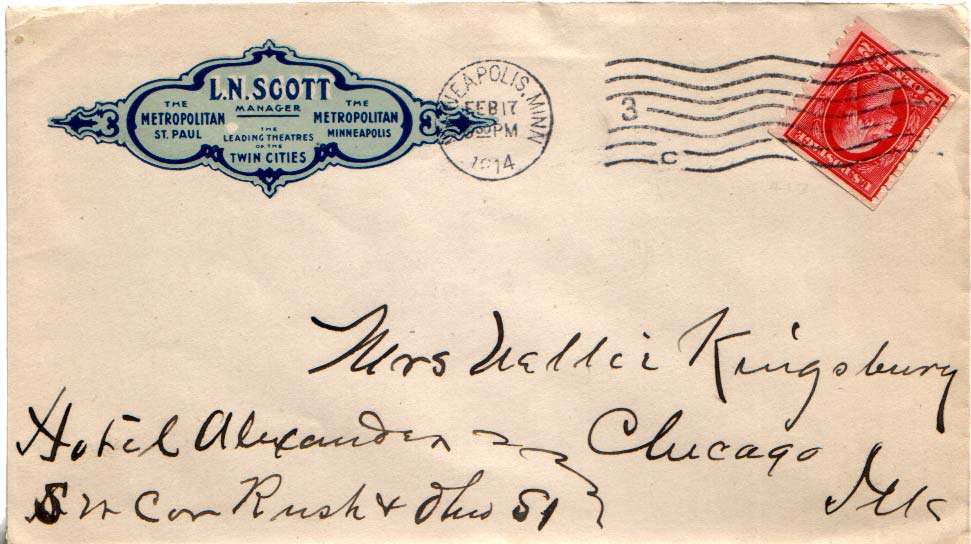 L.N. SCOTT
MANAGER
THE
METROPOLITAN
ST. PAUL
THE
LEADING THEATRES
OF THE
TWIN CITIES
THE
METROPOLITAN
MINNEAPOLIS
MINNEAPOLIS, MINN
FEB 17
PM
1914
3
C
Mrs Nellie Kingsbury
Hotel Alexander
Chicago
S W Cor Rush & Ohio St
Ills